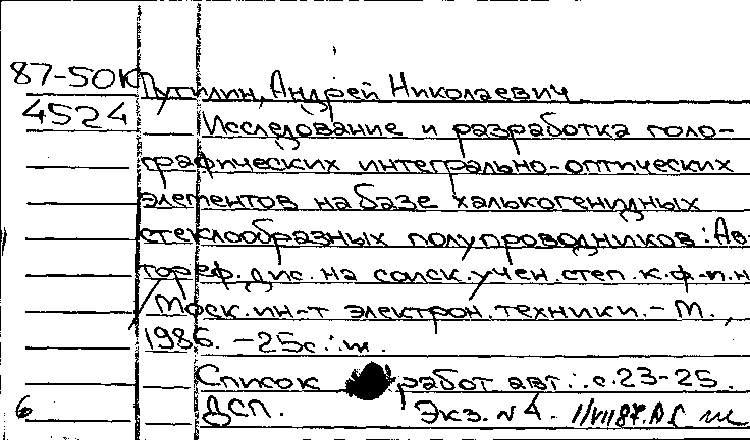 87-50К Путилин, Андрей Николаевич
4524 Исследование и разработка голо-
графических интегрально-оптических
элементов на базе халькогенидных
стеклообразных полупроводников: Ав-
тореф. дис. на соиск. учен. степ. к.ф.-м.н
Моск. ин-т электрон. техники. - М.,
1986. - 25с.: ил.
Список работ авт.: с. 23-25.
6 ДСП. Экз. N 4. 11/VII 87.